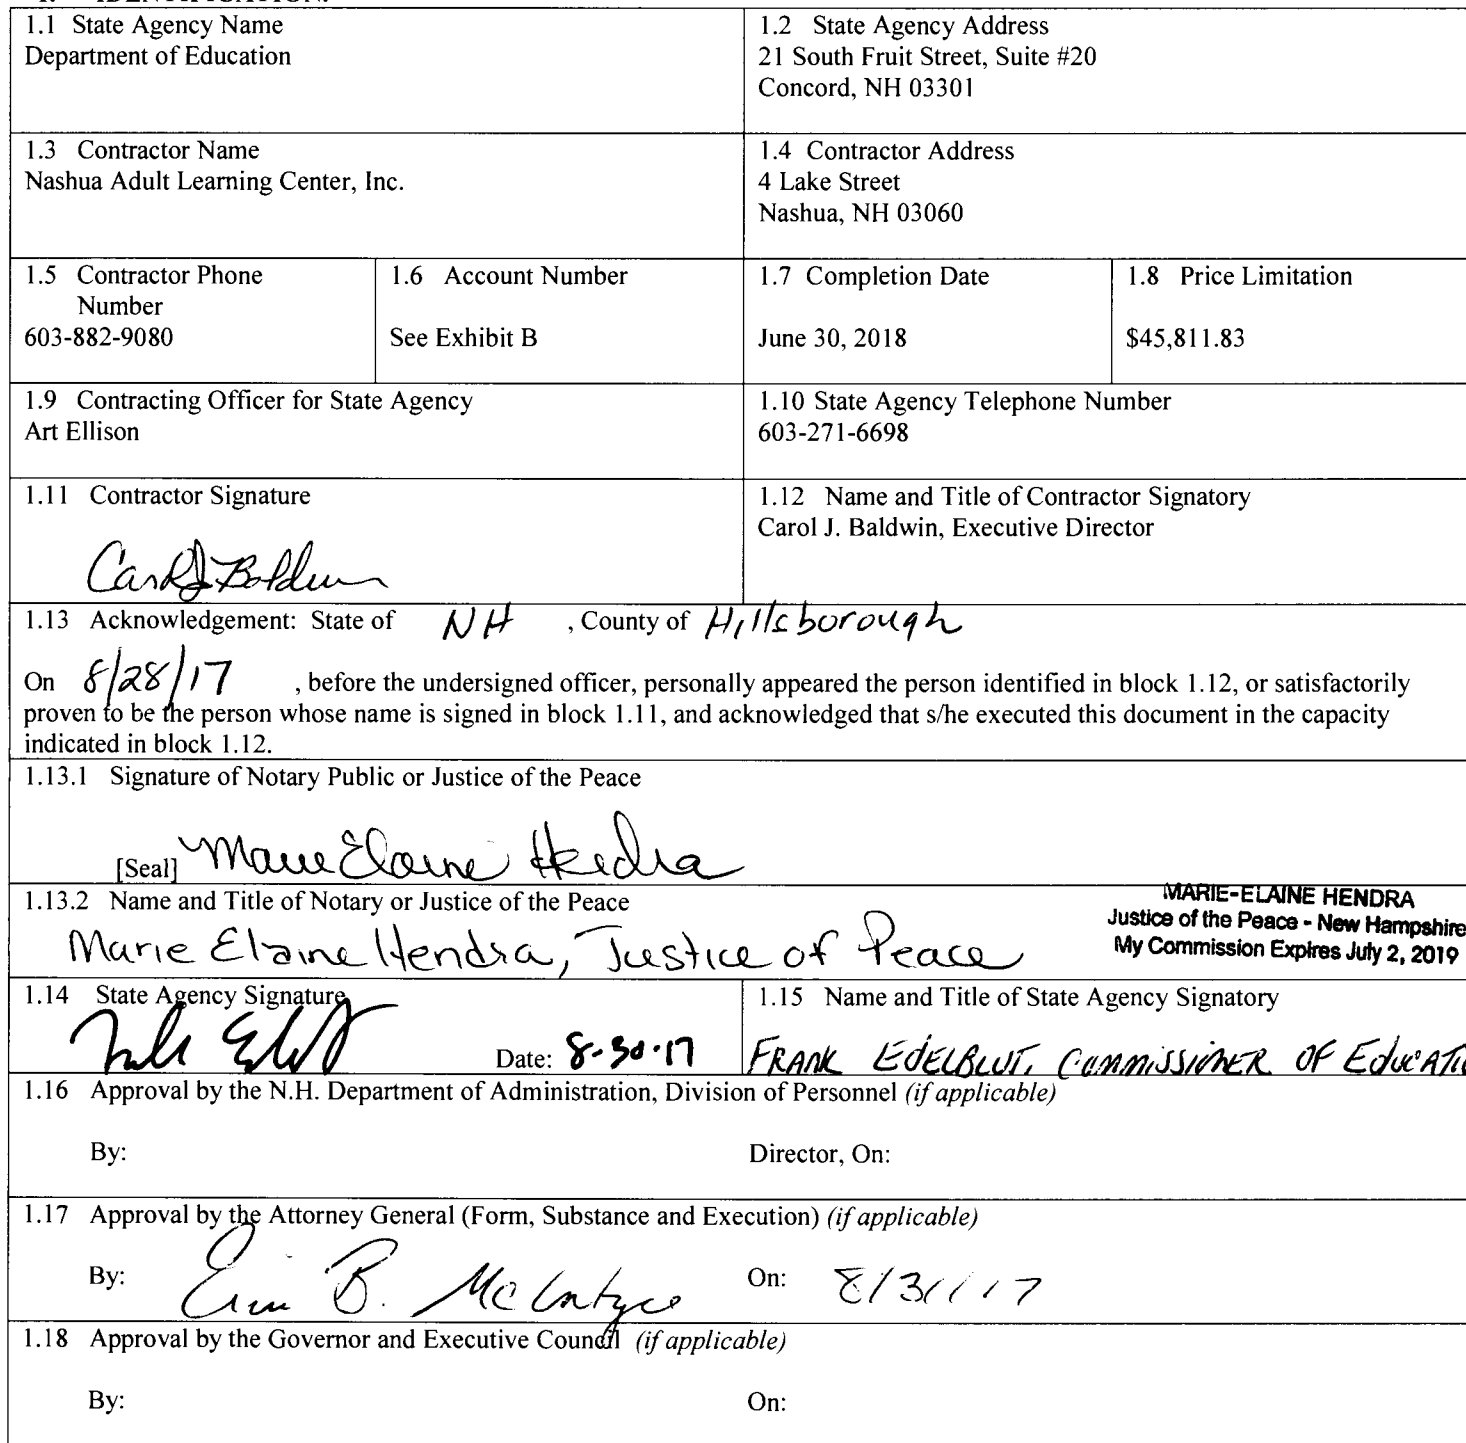 1.1 State Agency Name
Department of Education
1.2 State Agency Address
21 South Fruit Street, Suite #20
Concord, NH 03301
1.3 Contractor Name
Nashua Adult Learning Center, Inc.
1.4 Contractor Address
4 Lake Street
Nashua, NH 03060
1.5 Contractor Phone
Number
603-882-9080
1.6 Account Number
See Exhibit B
1.7 Completion Date
June 30, 2018
1.8 Price Limitation
$45,811.83
1.9 Contracting Officer for State Agency
Art Ellison
1.10 State Agency Telephone Number
603-271-6698
1.11 Contractor Signature
Carol J Baldwin
1.12 Name and Title of Contractor Signatory
Carol J. Baldwin, Executive Director
1.13 Acknowledgement: State of NH , County of Hillsborough
On 8/28/17 , before the undersigned officer, personally appeared the person identified in block 1.12, or satisfactorily
proven to be the person whose name is signed in block 1.11, and acknowledged that s/he executed this document in the capacity
indicated in block 1.12.
1.13.1 Signature of Notary Public or Justice of the Peace
[Seal] Marie Elaine Hendra
1.13.2 Name and Title of Notary or Justice of the Peace
Marie Elaine Hendra, Justice of Peace
MARIE-ELAINE HENDRA
Justice of the Peace - New Hampshire
My Commission Expires July 2, 2019
1.14 State Agency Signature
Date: 8-30-17
1.15 Name and Title of State Agency Signatory
FRANK EDELBLUT, COMMISSIONER OF EDUCATIO
1.16 Approval by the N.H. Department of Administration, Division of Personnel (if applicable)
By: Director, On:
1.17 Approval by the Attorney General (Form, Substance and Execution) (if applicable)
By: Erin B. McIntyre On: 8/31/17
1.18 Approval by the Governor and Executive Council (if applicable)
By: On: